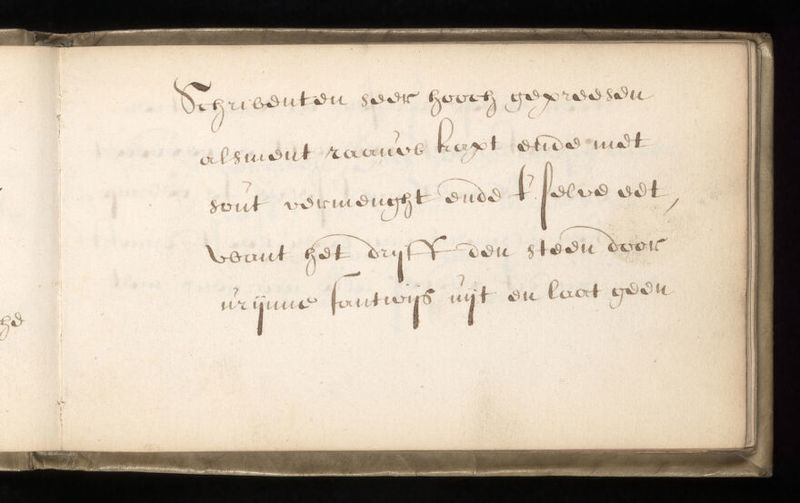 Schribenten seer hooch gepreesen
alsment raauw kapt ende met
sout vermenght ende t' selve eet,
want het dryft den steen door
urijnne santwijs uijt en laat geen
he